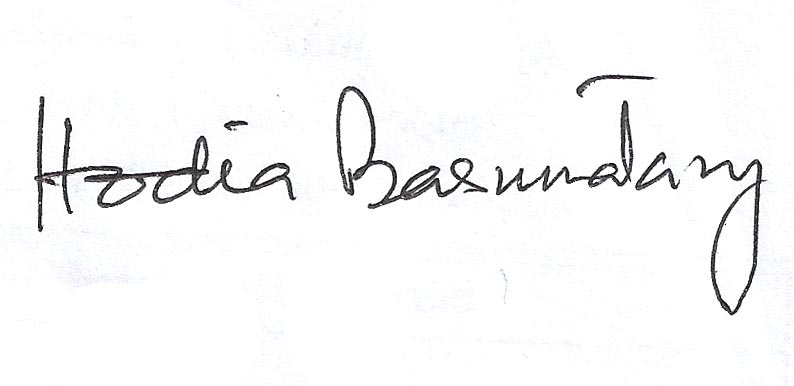 Hodia Basumatary